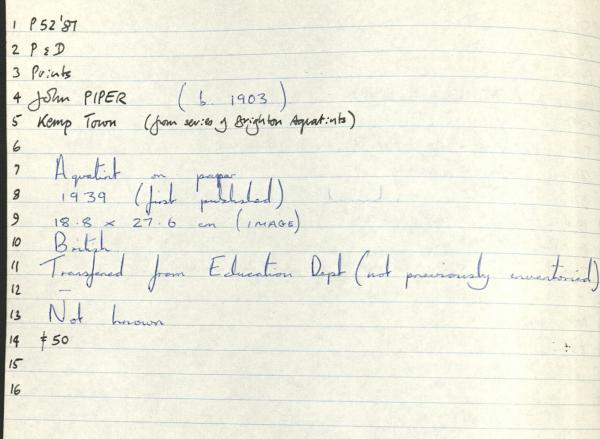 1 P52'87
2 P & D
3 Prints
4 John PIPER (b. 1903)
5 Kemp Town (from series of Brighton Aquatints)
6
7 Aquatint on paper
8 1939 (first published)
9 18.8 x 27.6 cm (IMAGE)
10 British
11 Transferred from Education Dept (not previously inventoried)
12 —
13 Not known
14 £50
15
16